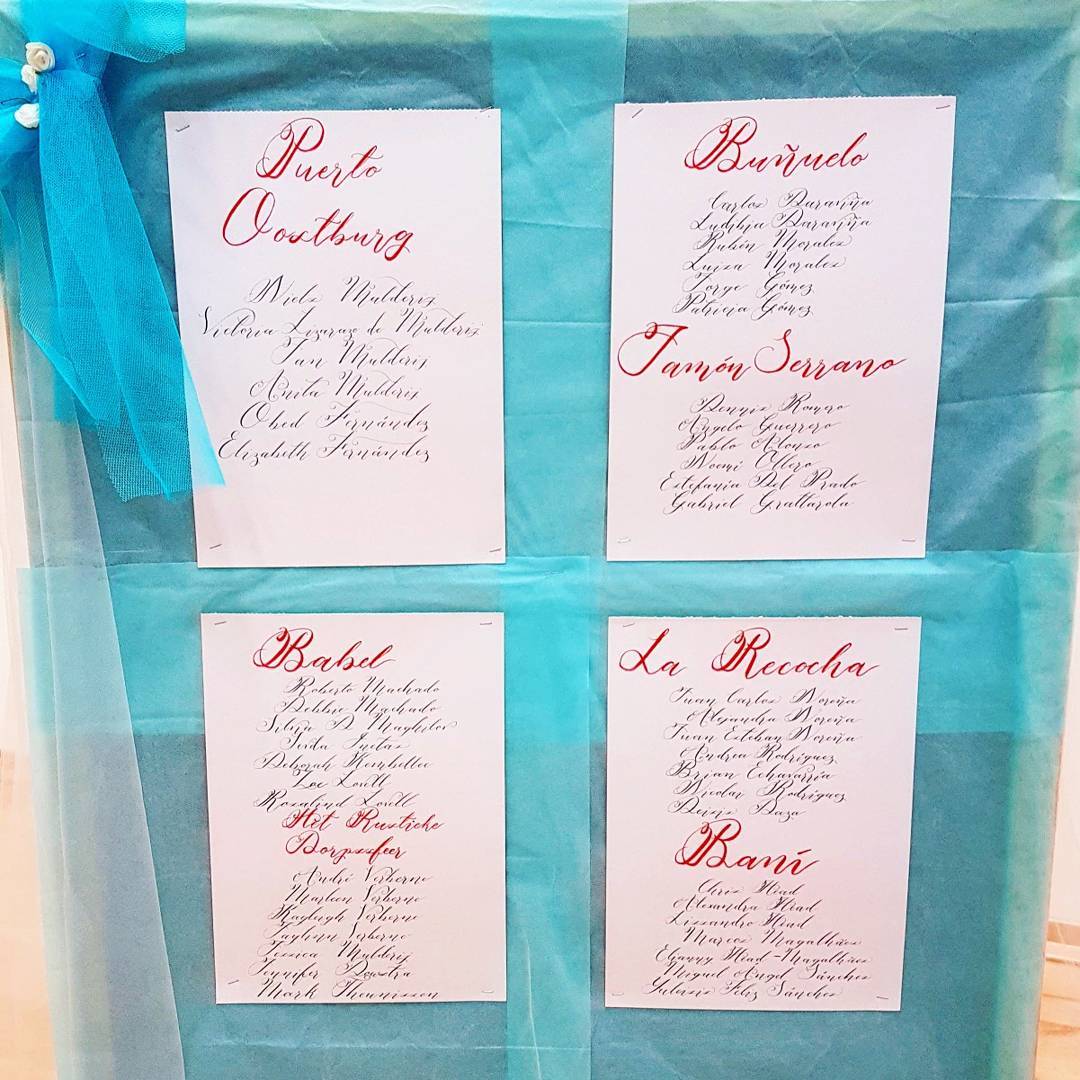 Puerto
Oostburg
Niels Mulderij
Victoria Lizarazo de Mulderij
Jan Mulderij
Anita Mulderij
Obed Fernández
Elizabeth Fernández
Buñuelo
Carlos
Rubén Morales
Luisa Morales
Jorge Gómez
Patricia Gómez
Jamón Serrano
Dennis Romero
Angelo Guerrero
Pablo Alonso
Noemi Ollero
Estefania Del Prado
Gabriel Grattarola
Babel
Roberto Machado
Debbie Machado
Silvia D.
Deborah Kembellee
Rosalind Lovell
Het Rustieke
Dorpssfeer
André Verberne
Marleen Verberne
Kayleigh Verberne
Verberne
Jessica Mulderij
Jennyfer
Mark Theunissen
La Recocha
Juan Carlos Noreña
Alejandra Noreña
Juan Esteban Noreña
Andrea Rodríguez
Brian Echavarría
Nicolas Rodríguez
Daza
Baní
Chris Head
Alexandra Head
Lissandro Head
Marcos Magalhães
Ehanny Head-Magalhães
Miguel Angel Sánchez
Feliz Sánchez